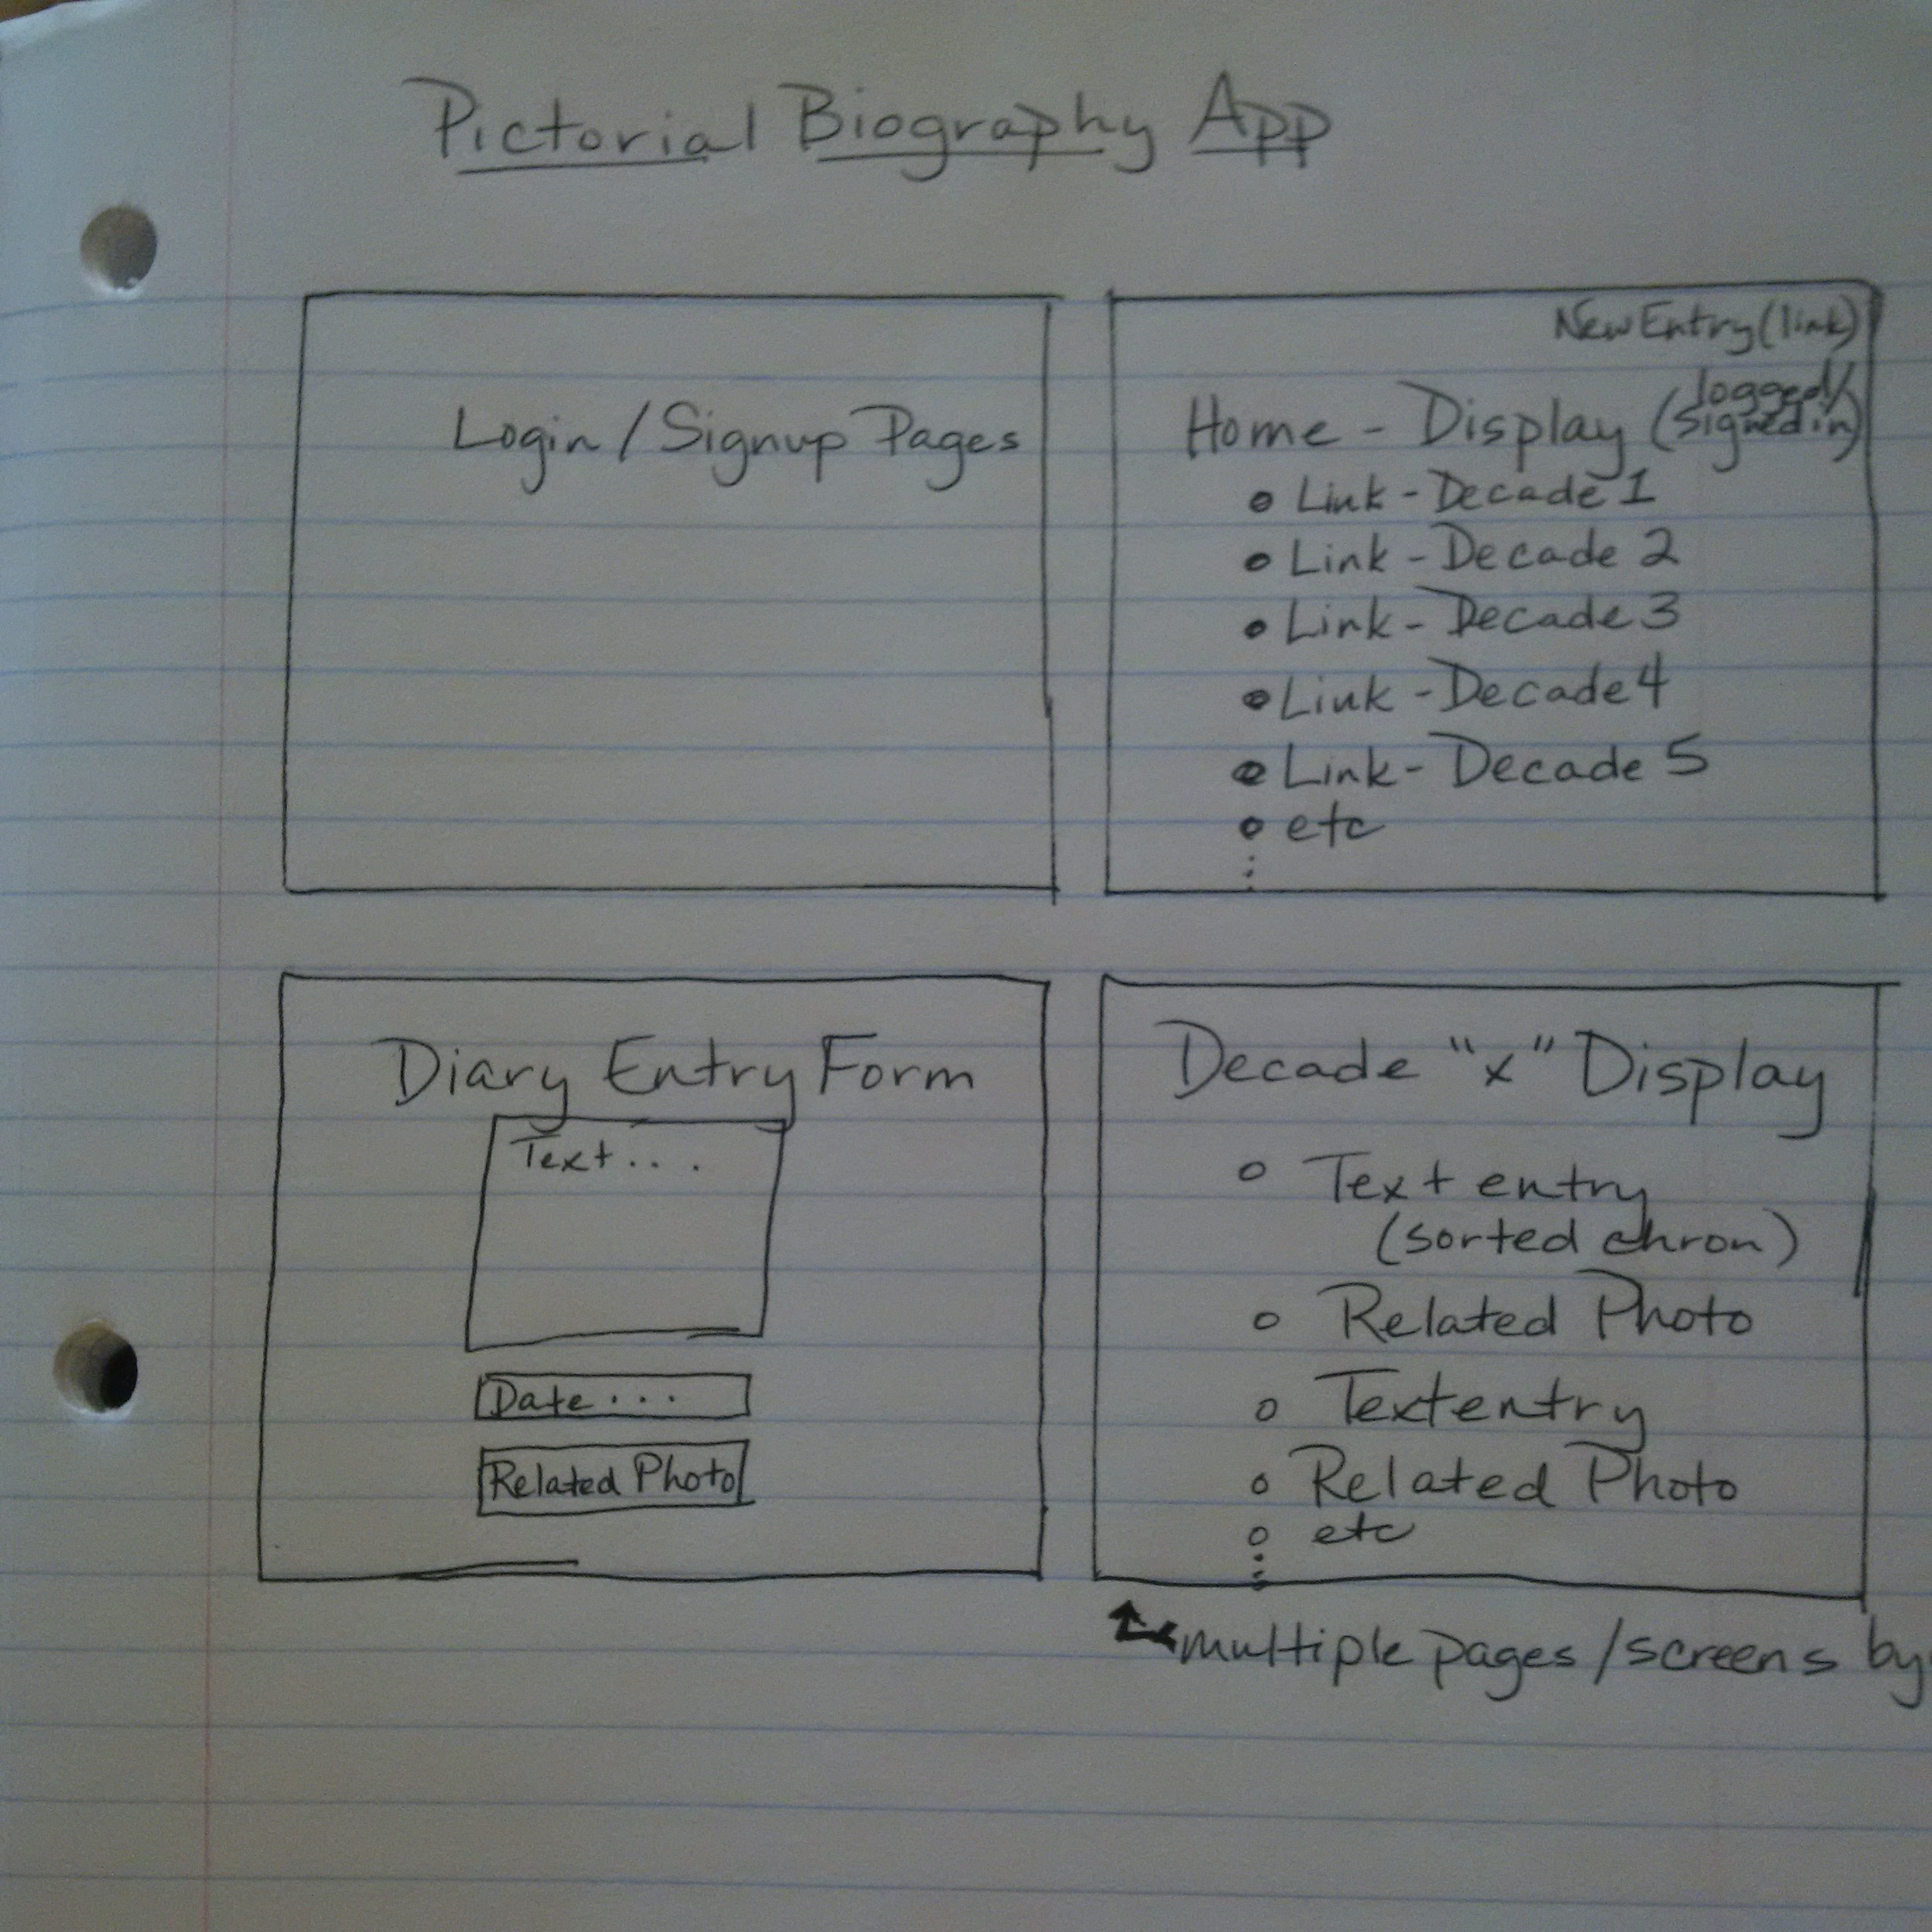 Pictorial Biography App
Login / Signup Pages
New Entry (link)
Home - Display (logged/
signed in)
Link - Decade 1
Link - Decade 2
Link - Decade 3
Link - Decade 4
Link - Decade 5
etc
Diary Entry Form
Text . . .
Date . . .
Related Photo
Decade "x" Display
Text entry
(sorted chron)
Related Photo
Text entry
Related Photo
etc
multiple pages / screens by